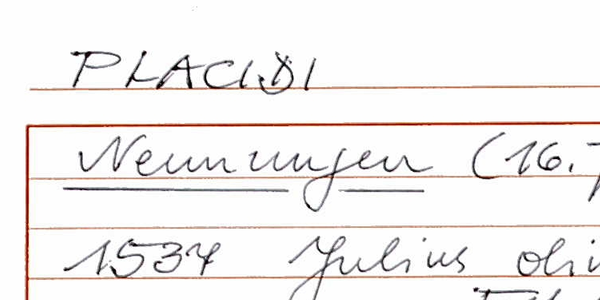 PLACIDI
Nennungen (16.
1537 Julius